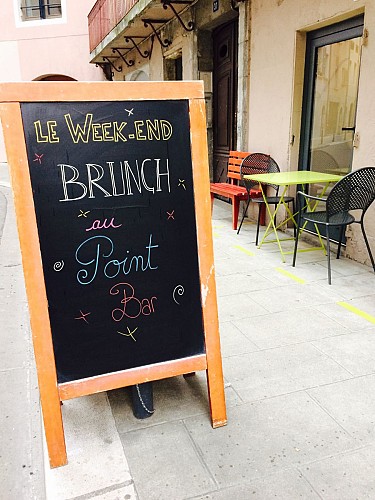 LE WEEK-END
BRUNCH
au
Point
Bar